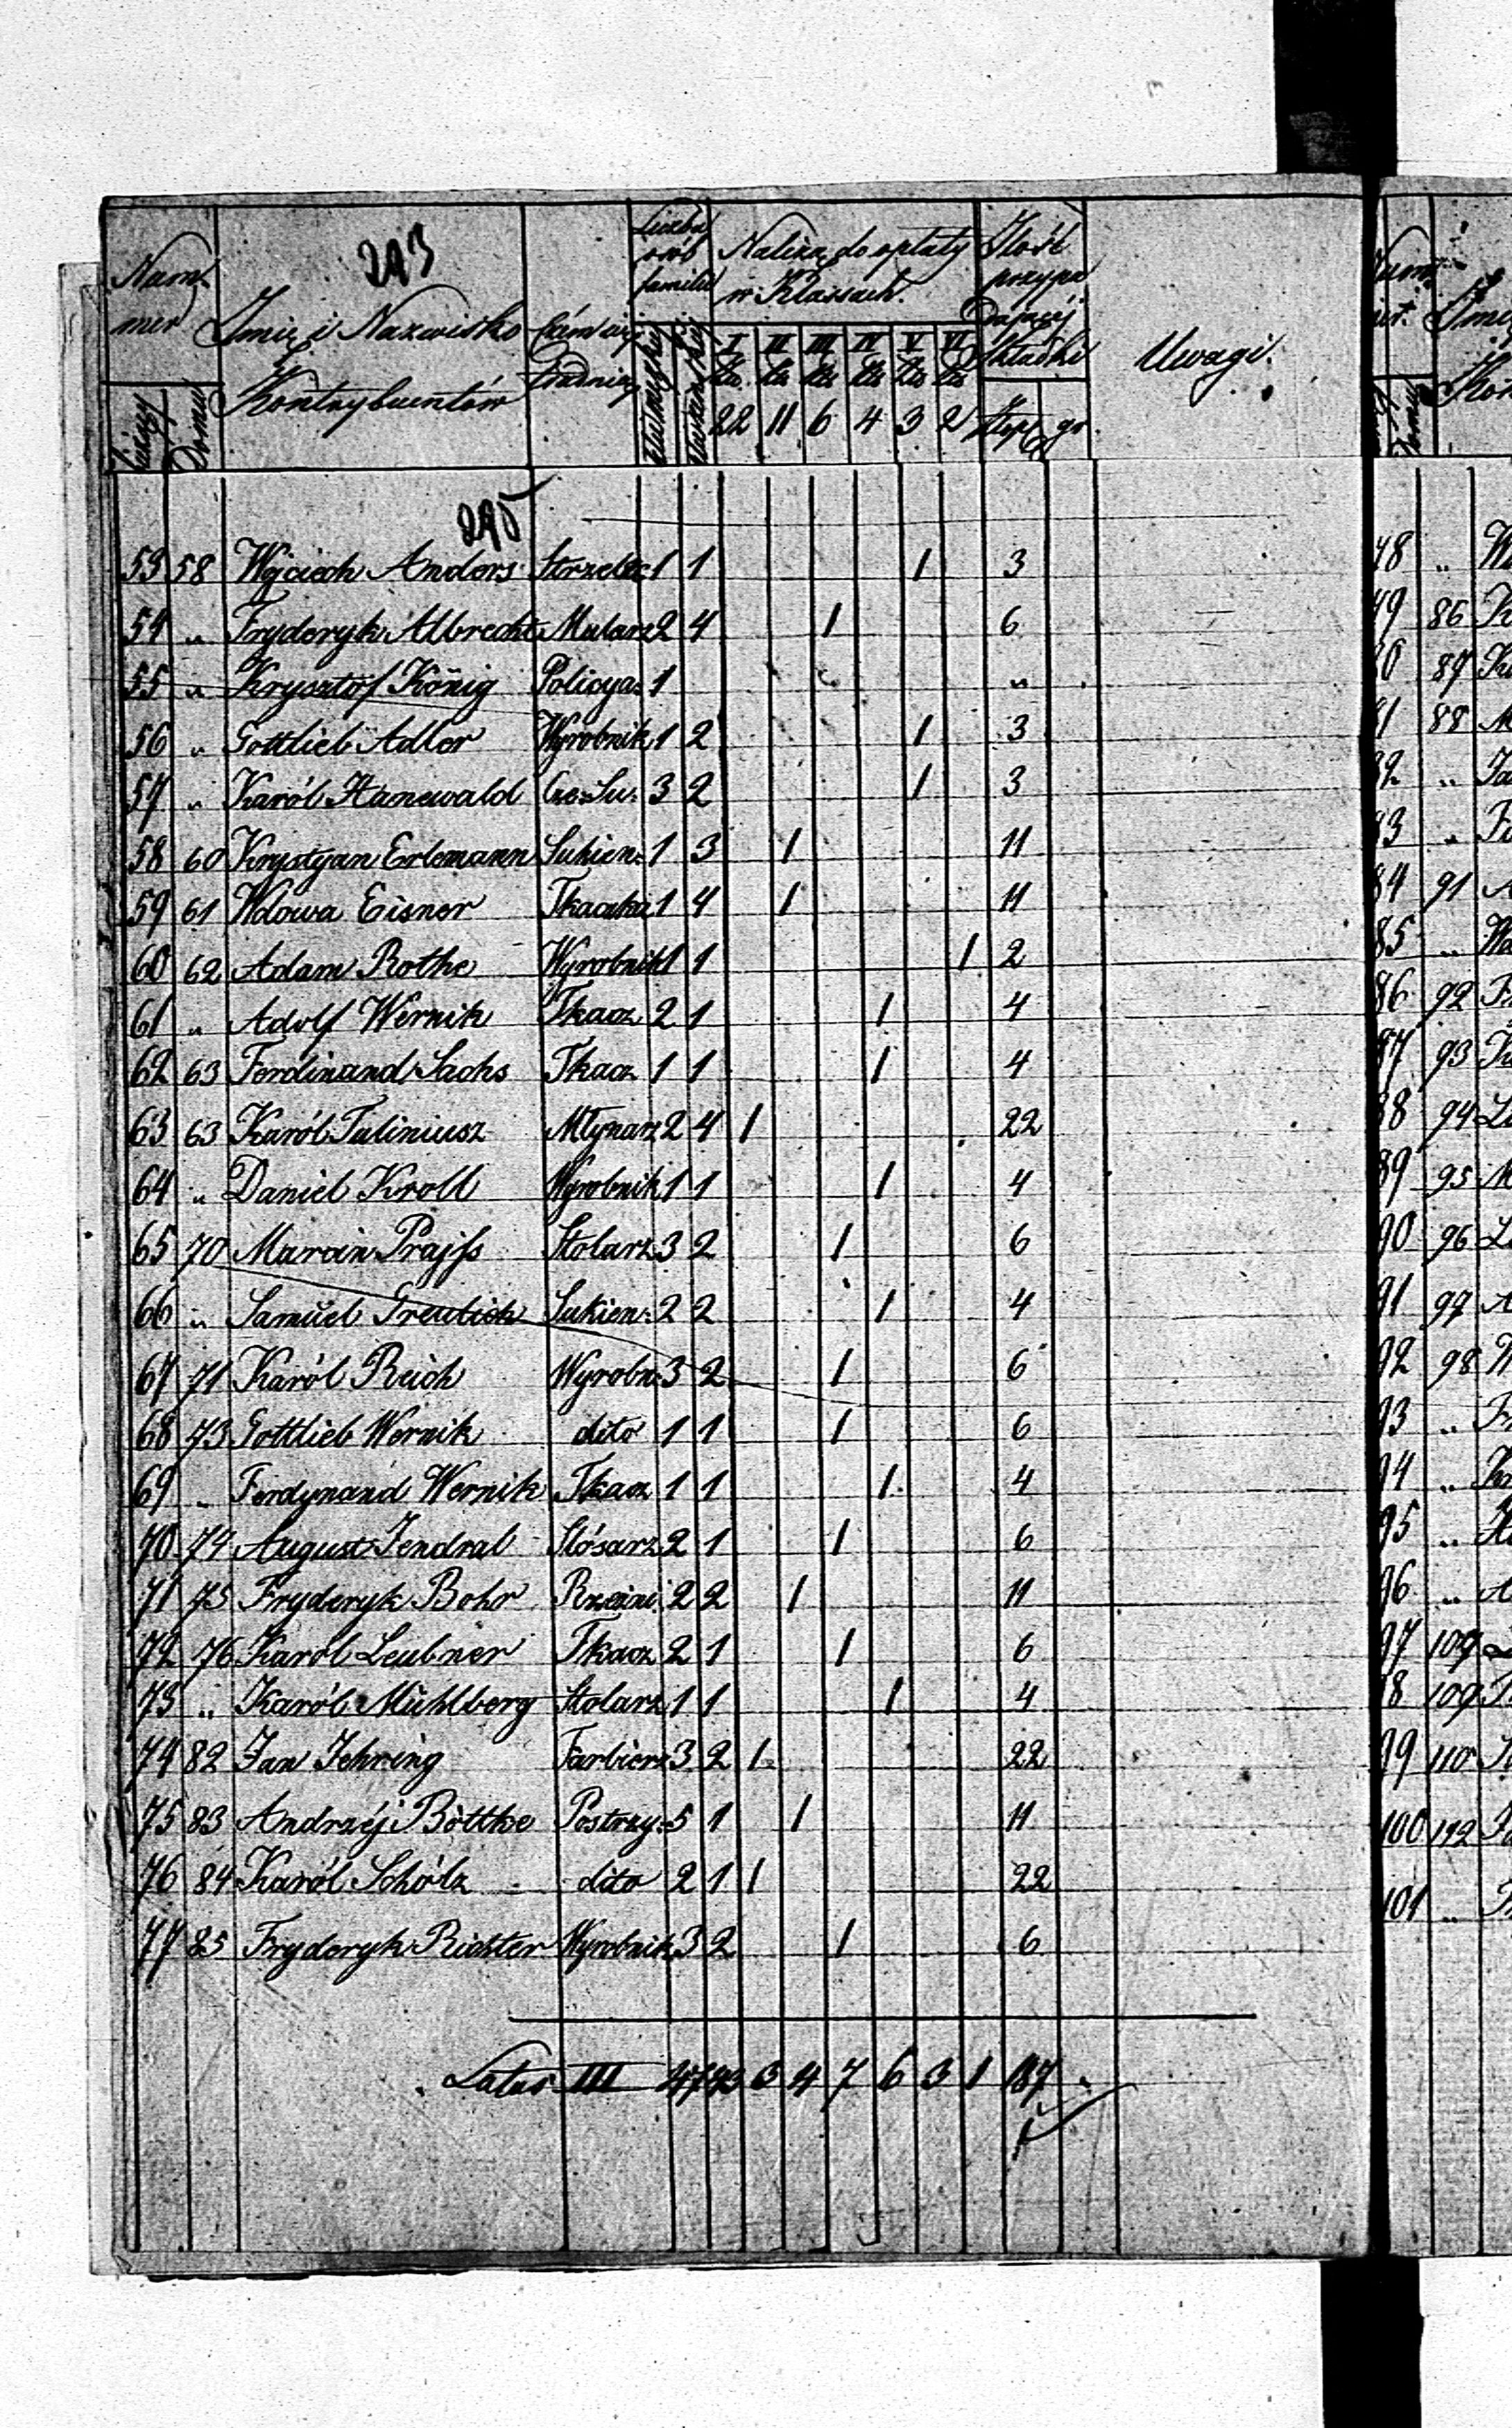 243
Num
mer
Imię i Nazwisko
Kontrybuentów
Czém się
trudnią
Liczba
osób
familii
Należą do opłaty
w Klassach.
Ilość
przypa
dającéj
składki
Uwagi.
bieżący
Domu
I II III IV V VI
22 11 6 4 3 2
złp. gr.
245
53 58 Wojciech Anders Strzelec 1 1 1 3
54 „ Fryderyk Albrecht Malarz 2 4 1 6
55 „ Krysztof König Policya: 1 „
56 „ Gottlieb Adler Wyrobnik 1 2 1 3
57 „ Karól Hanewald Cze: Su: 3 2 1 3
58 60 Krystyan Erlemann Sukien: 1 3 1 11
59 61 Wdowa Eisner Tkaczka 1 4 1 11
60 62 Adam Rothe Wyrobnik 1 1 1 2
61 „ Adolf Wernik Tkacz 2 1 1 4
62 63 Ferdinand Sachs Tkacz 1 1 1 4
63 63 Karól Taliniusz Młynarz 2 4 1 22
64 „ Daniel Kroll Wyrobnik 1 1 1 4
65 70 Marcin Prajss Stolarz 3 2 1 6
66 „ Samuel Greulich Sukien: 2 2 1 4
67 71 Karól Reich Wyrobn: 3 2 1 6
68 73 Gottlieb Wernik dito 1 1 1 6
69 „ Ferdynand Wernik Tkacz 1 1 1 4
70 74 August Jendral Slósarz 2 1 1 6
71 75 Fryderyk Bohr Rzeźni: 2 2 1 11
72 76 Karól Leubner Tkacz 2 1 1 6
73 „ Karól Mühlberg Stolarz 1 1 1 4
74 82 Jan Jehring Farbierz 3 2 1 22
75 83 Andrzéj Böttke Postrzy: 5 1 1 11
76 84 Karól Schölz dito 2 1 1 22
77 85 Fryderyk Richter Wyrobnik 3 2 1 6
Latus III 47 43 3 4 7 6 3 1 187
48 „
49 86
87
88
„
„
84 91
85 „
86 92
87 93
88 94
89 95
90 96
91 97
92 98
93 „
94 „
95 „
96 „
97 109
98 109
99 110
100 112
101 „